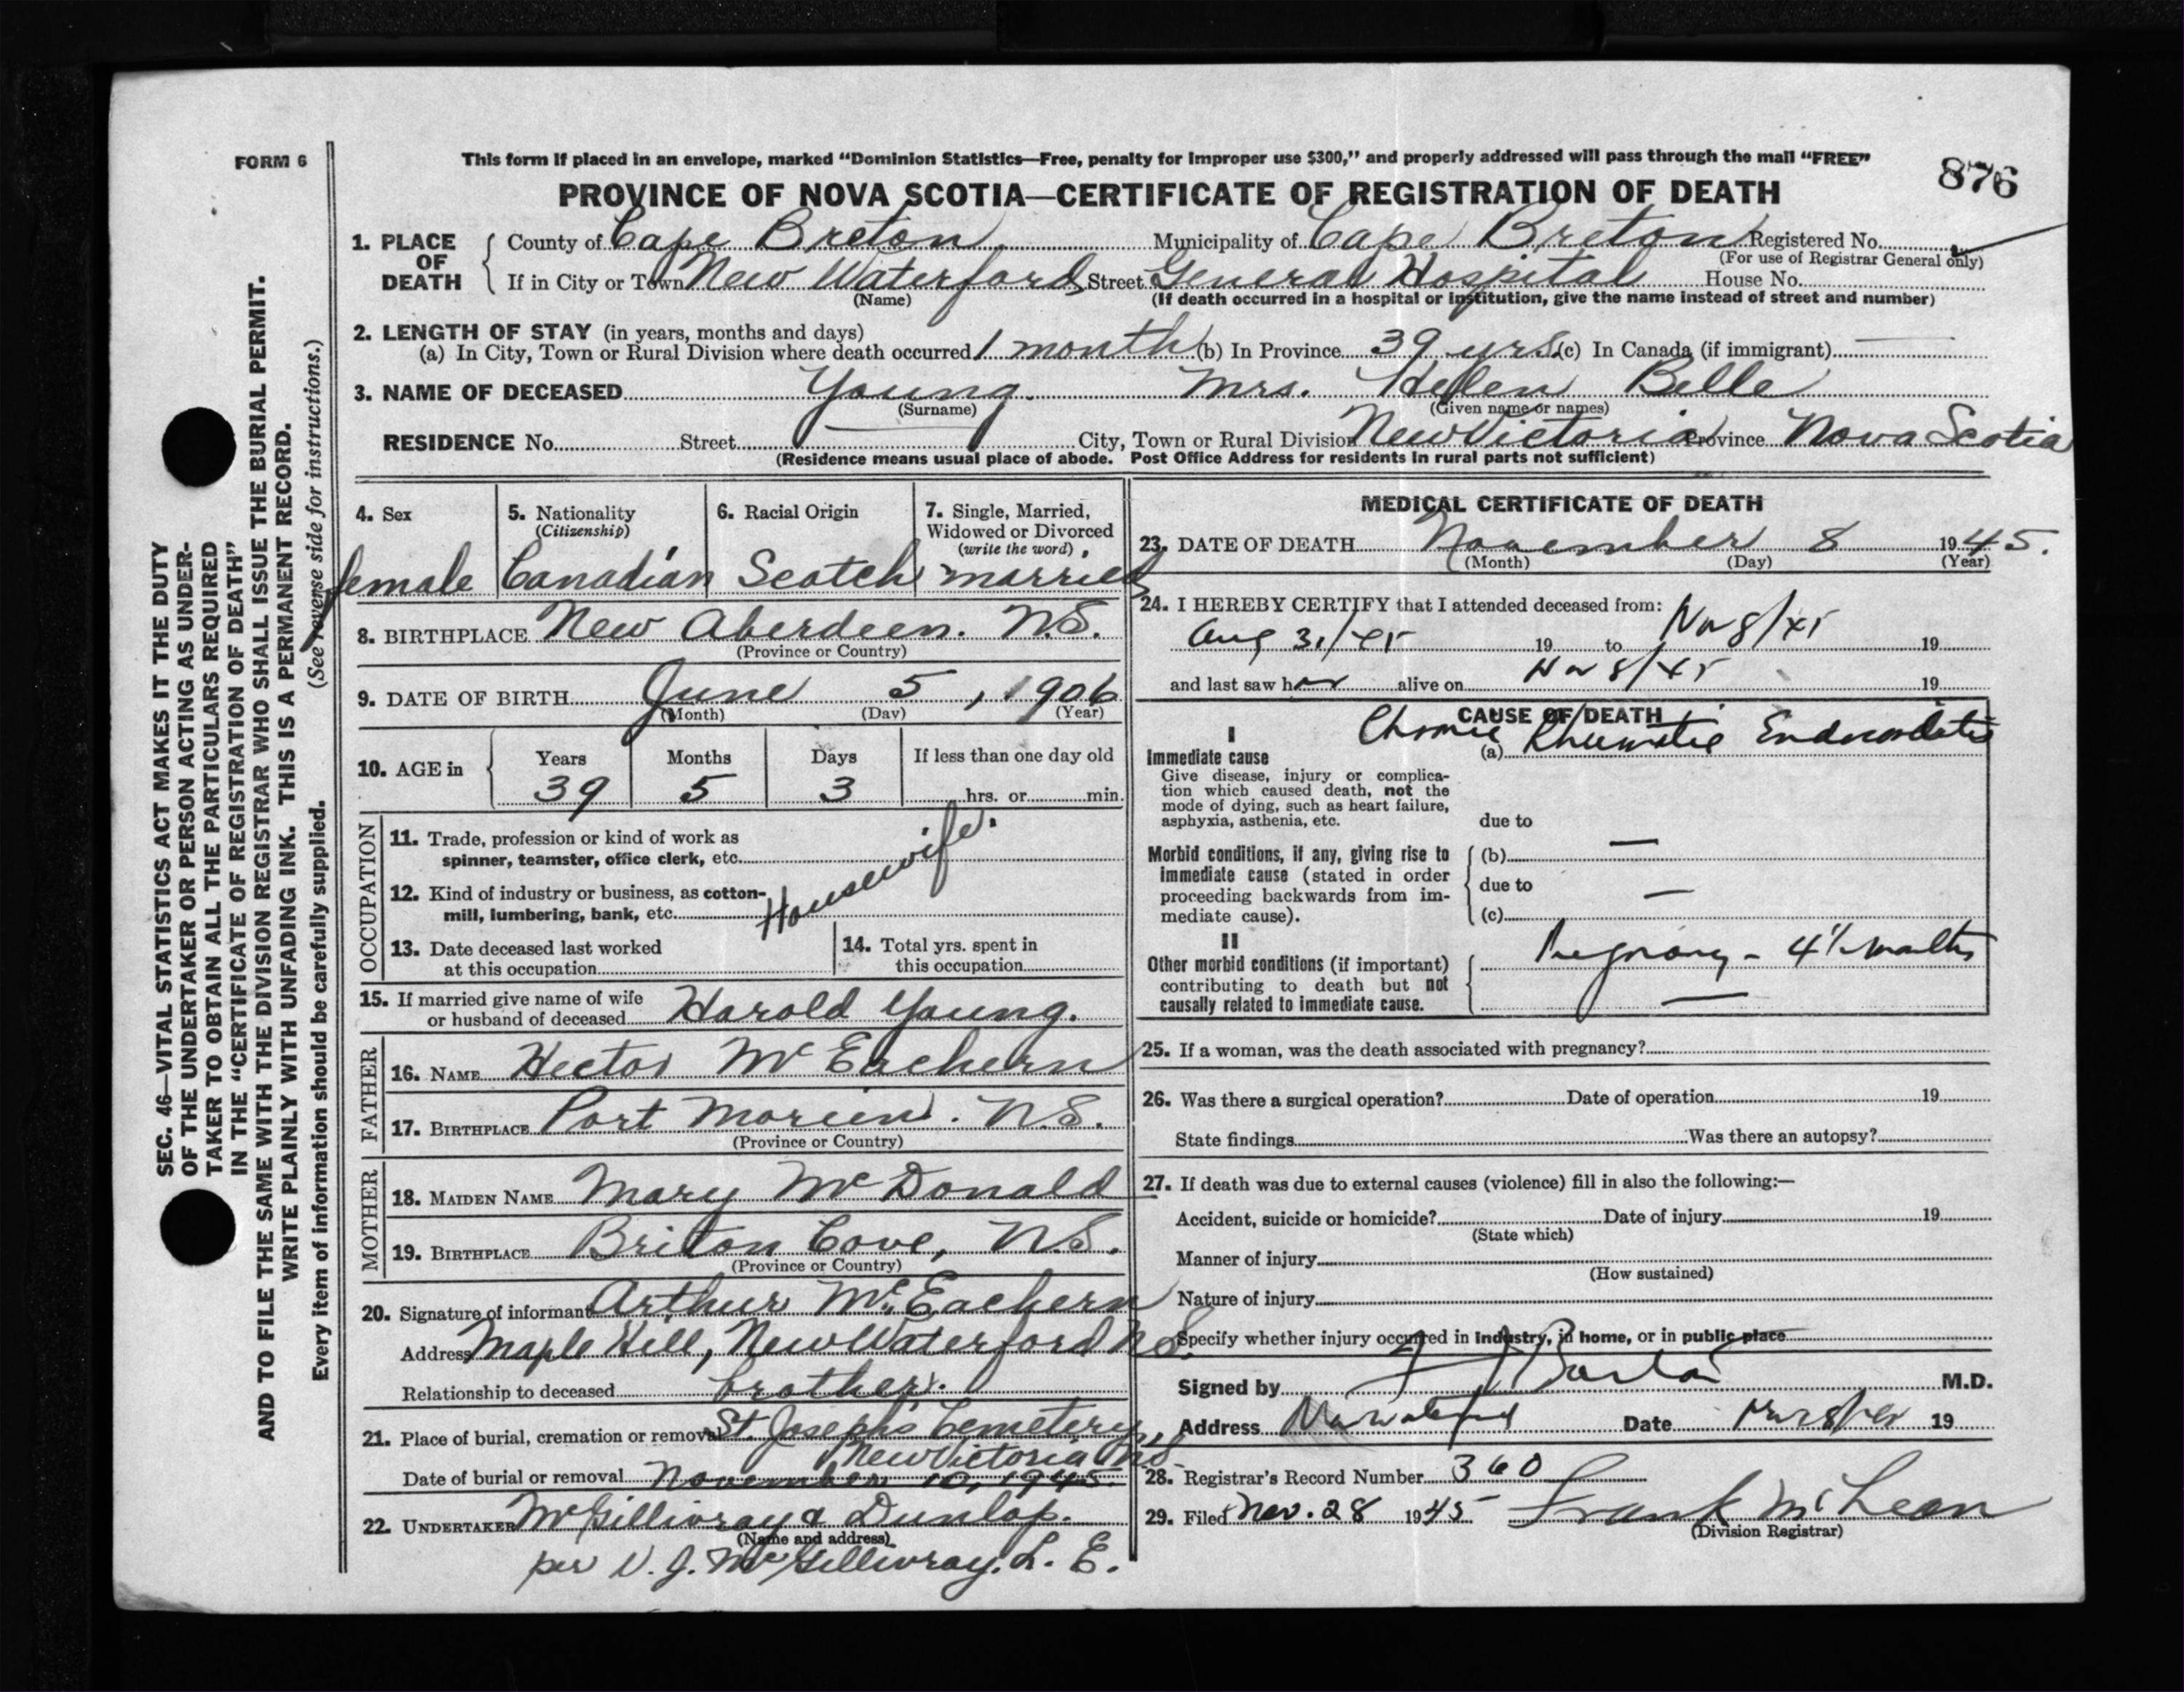 FORM 6
This form if placed in an envelope, marked “Dominion Statistics—Free, penalty for improper use $300,” and properly addressed will pass through the mail “FREE”
876
PROVINCE OF NOVA SCOTIA—CERTIFICATE OF REGISTRATION OF DEATH
SEC. 46—VITAL STATISTICS ACT MAKES IT THE DUTY
OF THE UNDERTAKER OR PERSON ACTING AS UNDER-
TAKER TO OBTAIN ALL THE PARTICULARS REQUIRED
IN THE “CERTIFICATE OF REGISTRATION OF DEATH”
AND TO FILE THE SAME WITH THE DIVISION REGISTRAR WHO SHALL ISSUE THE BURIAL PERMIT.
WRITE PLAINLY WITH UNFADING INK. THIS IS A PERMANENT RECORD.
Every item of information should be carefully supplied. (See reverse side for instructions.)
1. PLACE OF DEATH County of Cape Breton Municipality of Cape Breton Registered No.
(For use of Registrar General only)
If in City or Town New Waterford Street General Hospital House No.
(Name) (If death occurred in a hospital or institution, give the name instead of street and number)
2. LENGTH OF STAY (in years, months and days)
(a) In City, Town or Rural Division where death occurred 1 month (b) In Province 39 yrs. (c) In Canada (if immigrant) —
3. NAME OF DECEASED Young Mrs. Helen Belle
(Surname) (Given name or names)
RESIDENCE No. Street City, Town or Rural Division New Victoria Province Nova Scotia
(Residence means usual place of abode. Post Office Address for residents in rural parts not sufficient)
4. Sex
female
5. Nationality
(Citizenship)
Canadian
6. Racial Origin
Scotch
7. Single, Married,
Widowed or Divorced
(write the word)
married
8. BIRTHPLACE New Aberdeen. N.S.
(Province or Country)
9. DATE OF BIRTH June 5, 1906
(Month) (Day) (Year)
10. AGE in Years Months Days If less than one day old
39 5 3 hrs. or min.
OCCUPATION
11. Trade, profession or kind of work as
spinner, teamster, office clerk, etc.
12. Kind of industry or business, as cotton-
mill, lumbering, bank, etc.
Housewife.
13. Date deceased last worked
at this occupation
14. Total yrs. spent in
this occupation
15. If married give name of wife
or husband of deceased Harold Young.
FATHER
16. NAME Hector McEachern
17. BIRTHPLACE Port Morien. N.S.
(Province or Country)
MOTHER
18. MAIDEN NAME Mary McDonald
19. BIRTHPLACE Briton Cove, N.S.
(Province or Country)
20. Signature of informant Arthur McEachern
Address Maple Hill, New Waterford N.S.
Relationship to deceased brother.
21. Place of burial, cremation or removal St. Joseph's Cemetery
New Victoria N.S.
Date of burial or removal November 10, 1945.
22. UNDERTAKER McGillivray & Dunlop.
(Name and address)
per V. J. McGillivray, L. E.
MEDICAL CERTIFICATE OF DEATH
23. DATE OF DEATH November 8 1945.
(Month) (Day) (Year)
24. I HEREBY CERTIFY that I attended deceased from:
Aug 31/45 19 to Nov 8/45 19
and last saw her alive on Nov 8/45 19
CAUSE OF DEATH
I
Immediate cause
Give disease, injury or complica-
tion which caused death, not the
mode of dying, such as heart failure,
asphyxia, asthenia, etc.
(a) Chronic Rheumatic Endocarditis
due to
Morbid conditions, if any, giving rise to
immediate cause (stated in order
proceeding backwards from im-
mediate cause).
(b) —
due to
(c) —
II
Other morbid conditions (if important)
contributing to death but not
causally related to immediate cause.
Pregnancy - 4½ months
—
25. If a woman, was the death associated with pregnancy?
26. Was there a surgical operation? Date of operation 19
State findings Was there an autopsy?
27. If death was due to external causes (violence) fill in also the following:—
Accident, suicide or homicide? Date of injury 19
(State which)
Manner of injury
(How sustained)
Nature of injury
Specify whether injury occurred in industry, in home, or in public place
Signed by M.D.
Address New Waterford Date 19
28. Registrar's Record Number 360
29. Filed Nov. 28 1945 Frank McLean
(Division Registrar)